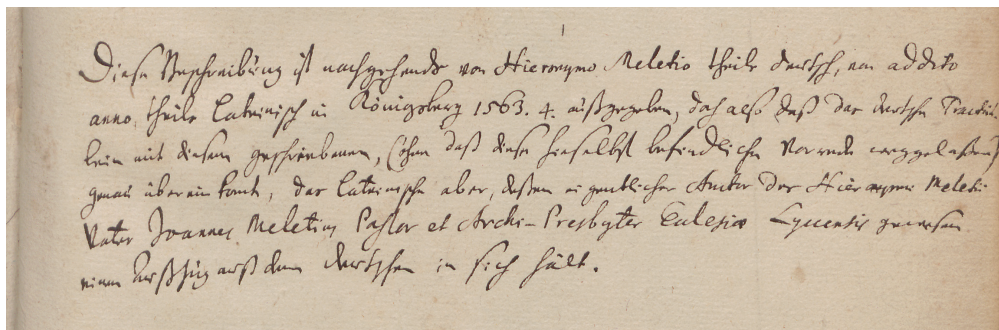 Diese Beschreibung ist nachgehends von Hieronymo Meletio theils deutsch, non addito
anno, theils Lateinisch in Königsberg 1563. 4. außgegeben, doch alß daß das deutsche Tractät-
lein mit diesem geschriebenen, (ohne daß diese hieselbst befindliche Vorrede weggelaßen)
genau überein komt, das Lateinische aber, deßen eigentlicher Autor des Hieronymi Meletii
Vater Joannes Meletius Pastor et Archi-Presbyter Ecclesiæ Lycensis gewesen
einen Außzug auß dem deutschen in sich hält.